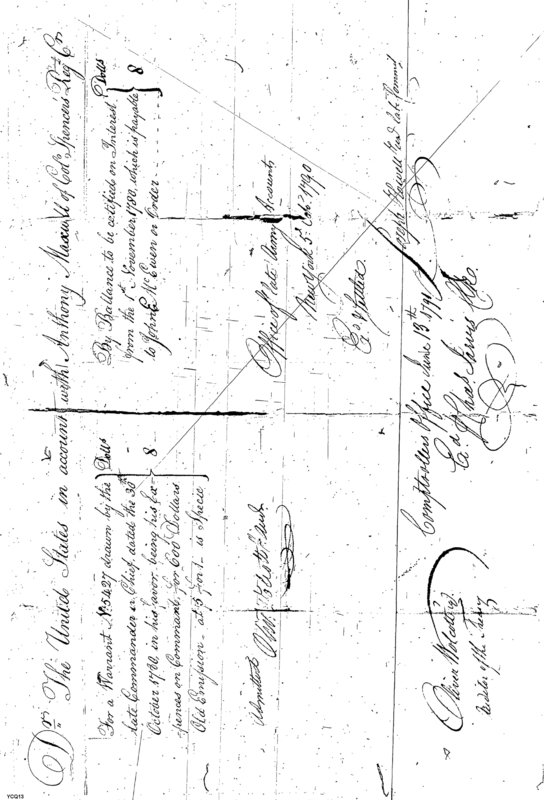 Dr. The United States in account with Anthony Maxwell of Col. Spencers Regt Cr
For a Warrant No 5427 drawn by the
late Commander in Chief, dated the 30th
October 1780, in his favor, being his ex-
pences on Command, for 600 Dollars
Old Emission - at 75 for 1 - is Specie
Dolls
8
By Ballance to be certified on Interest
from the 1st November 1780, which is payable
to John McEwen or Order
Dolls
8
Office of late Army Accounts
New York 5 1790
Joseph Howell
Admitted
Comptrollers Office June 13th 1791
Oliver Wolcott
Auditor of the Treasy
YCQ13